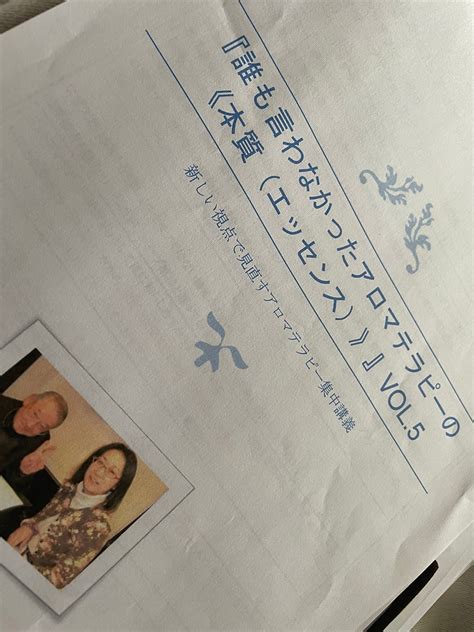 『誰も言わなかったアロマテラピーの
《本質（エッセンス）》』VOL.5
新しい視点で見直すアロマテラピー集中講義